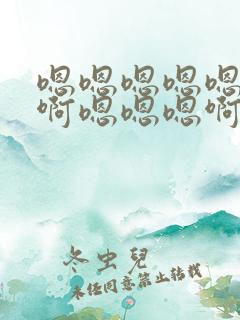 嗯嗯嗯嗯嗯
啊嗯嗯嗯啊
冬虫兒
未经同意禁止转载